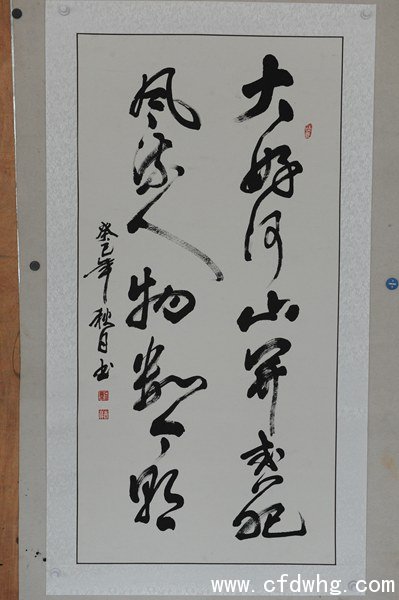 大好河山開紀
风流人物数今朝
癸巳年秋月书
www.cfdwhg.com